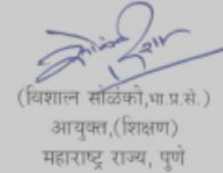 (विशाल सोळंकी,भा.प्र.से.)
आयुक्त,(शिक्षण)
महाराष्ट्र राज्य, पुणे